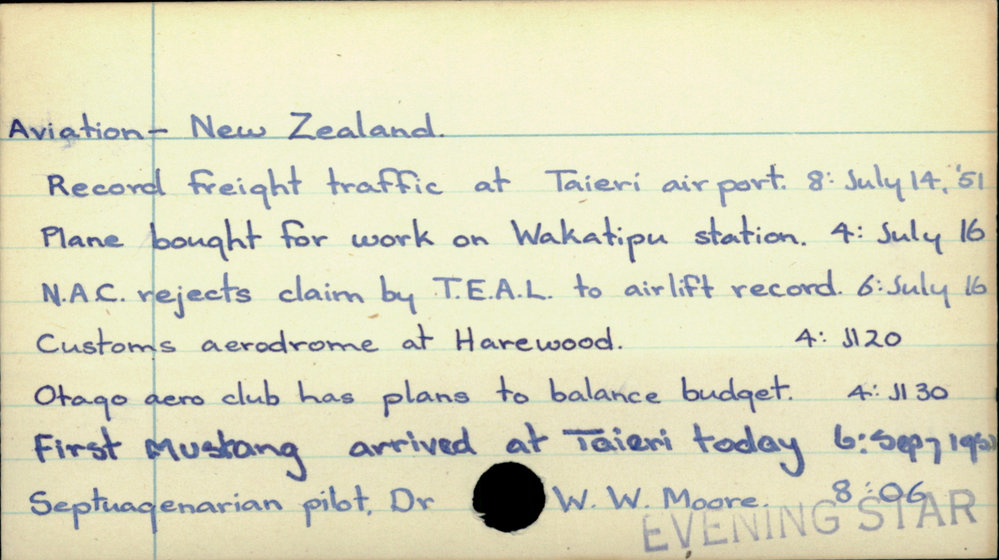 Aviation - New Zealand.
Record freight traffic at Taieri airport. 8: July 14, '51
Plane bought for work on Wakatipu station. 4: July 16
N.A.C. rejects claim by T.E.A.L. to airlift record. 6: July 16
Customs aerodrome at Harewood. 4: Jl 20
Otago aero club has plans to balance budget. 4: Jl 30
First Mustang arrived at Taieri today 6: Sep 7 1951
Septuagenarian pilot, Dr W. W. Moore. 8: O6
EVENING STAR